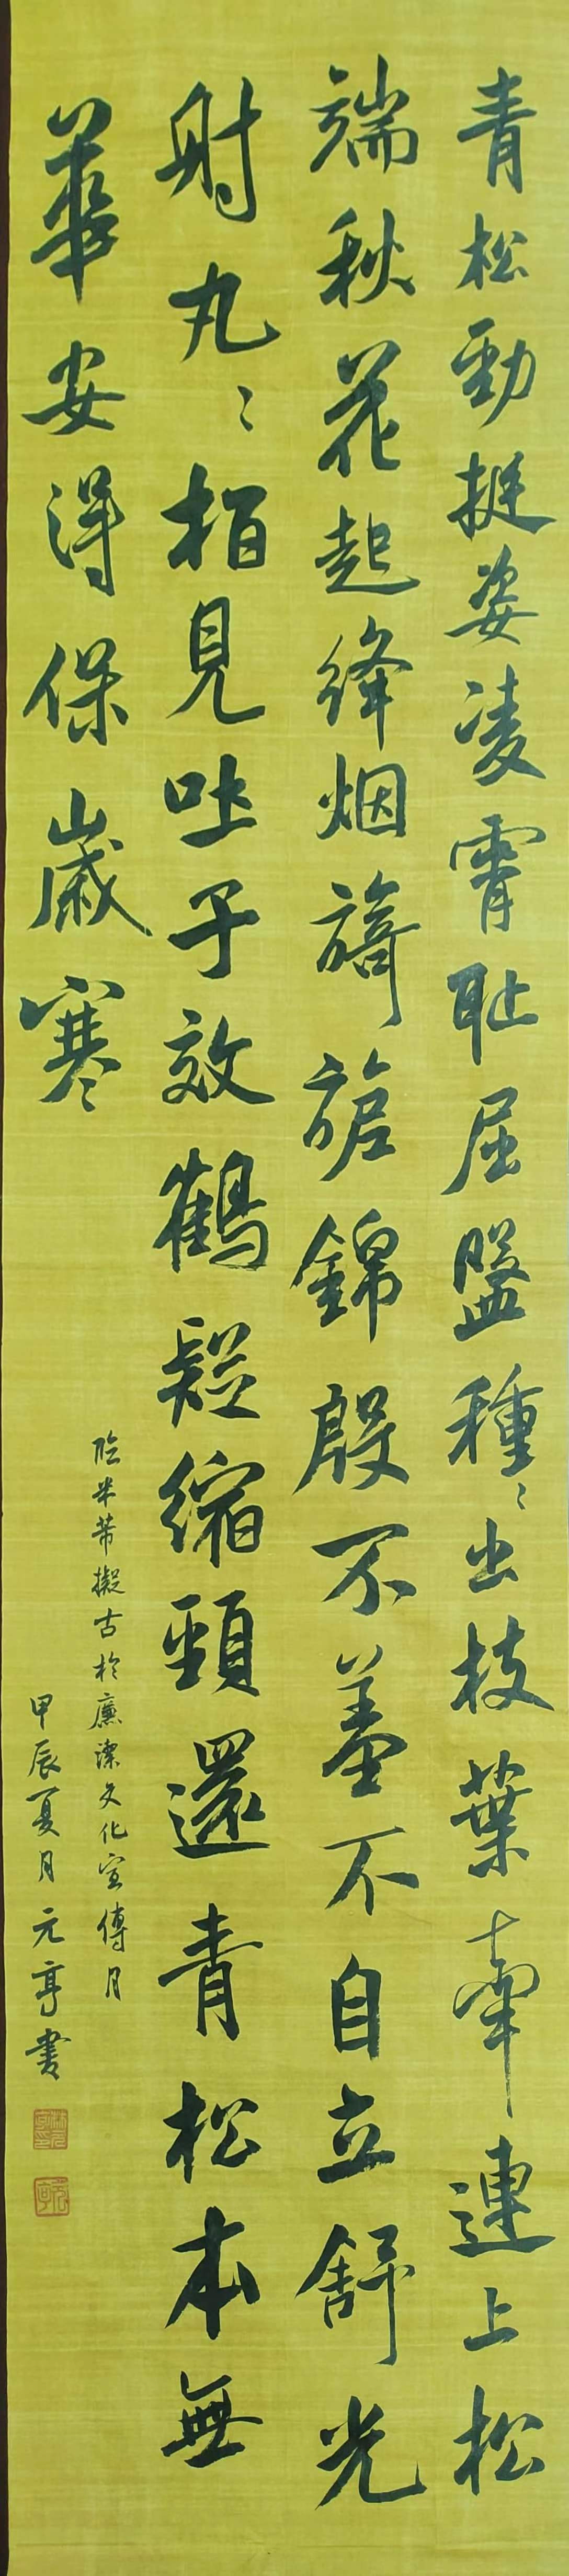 青松勁挺姿凌霄恥屈盤種〻出枝葉牽連上松
端秋花起絳烟旖旎錦殷不羞不自立舒光
射丸〻柏見吐子效鶴疑縮頸還青松本無
華安得保歲寒
臨米芾擬古於廉潔文化宣傳月
甲辰夏月元亨書